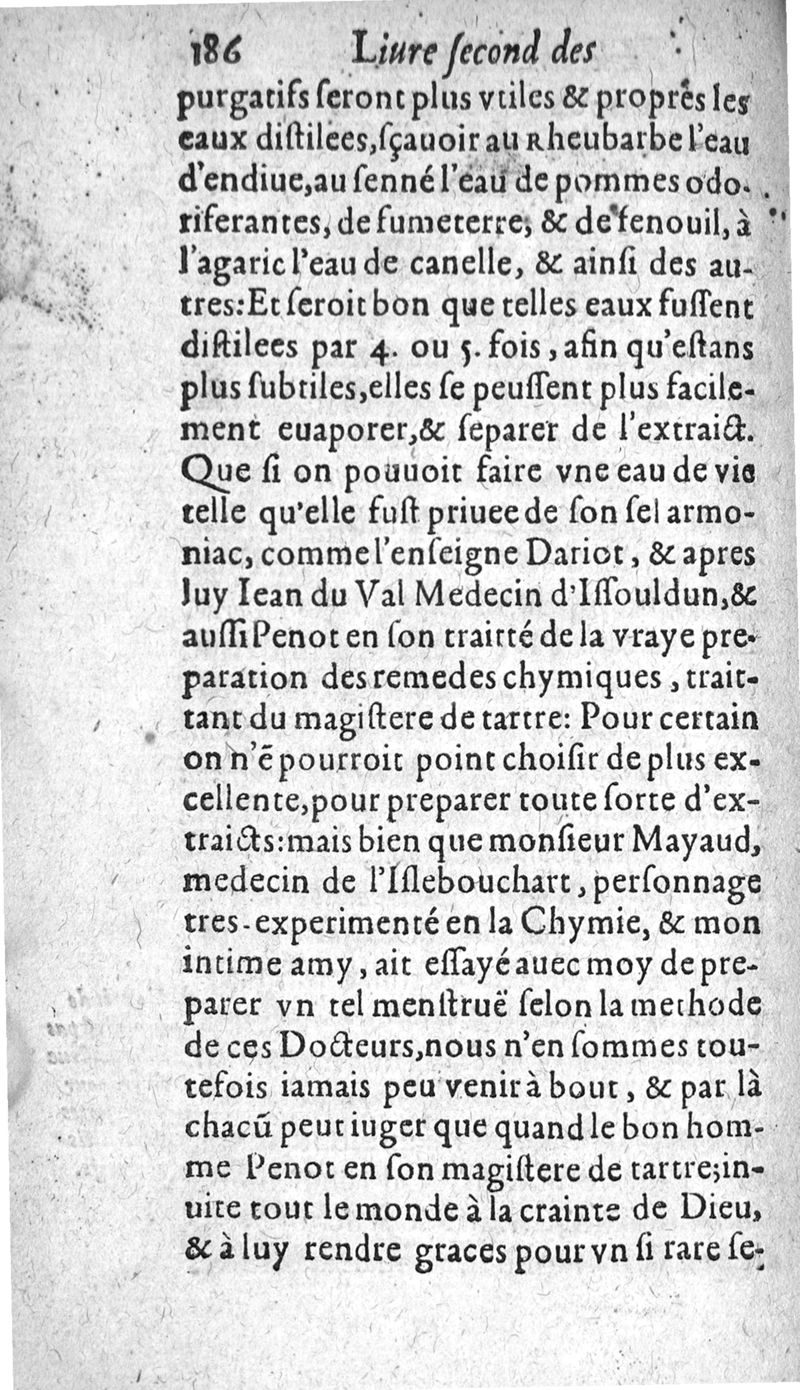 186 Liure ſecond des
purgatifs ſeront plus vtiles & propres les
eaux diſtilees,ſçauoir au Rheubarbe l'eau
d'endiue,au ſenné l'eau de pommes odo-
riferantes, de fumeterre, & de fenouil, à
l'agaric l'eau de canelle, & ainſi des au-
tres:Et ſeroit bon que telles eaux fuſſent
diſtilees par 4. ou 5. fois, afin qu'eſtans
plus ſubtiles,elles ſe peuſſent plus facile-
ment euaporer,& ſeparer de l'extraict.
Que ſi on pouuoit faire vne eau de vie
telle qu'elle fuſt priuee de ſon ſel armo-
niac, comme l'enſeigne Dariot, & apres
luy Iean du Val Medecin d'Iſſouldun,&
auſſi Penot en ſon traitté de la vraye pre-
paration des remedes chymiques, trait-
tant du magiſtere de tartre: Pour certain
on n'ẽ pourroit point choiſir de plus ex-
cellente,pour preparer toute ſorte d'ex-
traicts:mais bien que monſieur Mayaud,
medecin de l'Iſlebouchart, perſonnage
tres-experimenté en la Chymie, & mon
intime amy, ait eſſayé auec moy de pre-
parer vn tel menſtruë ſelon la methode
de ces Docteurs,nous n'en ſommes tou-
tefois iamais peu venir à bout, & par là
chacũ peut iuger que quand le bon hom-
me Penot en ſon magiſtere de tartre;in-
uite tout le monde à la crainte de Dieu,
& à luy rendre graces pour vn ſi rare ſe-